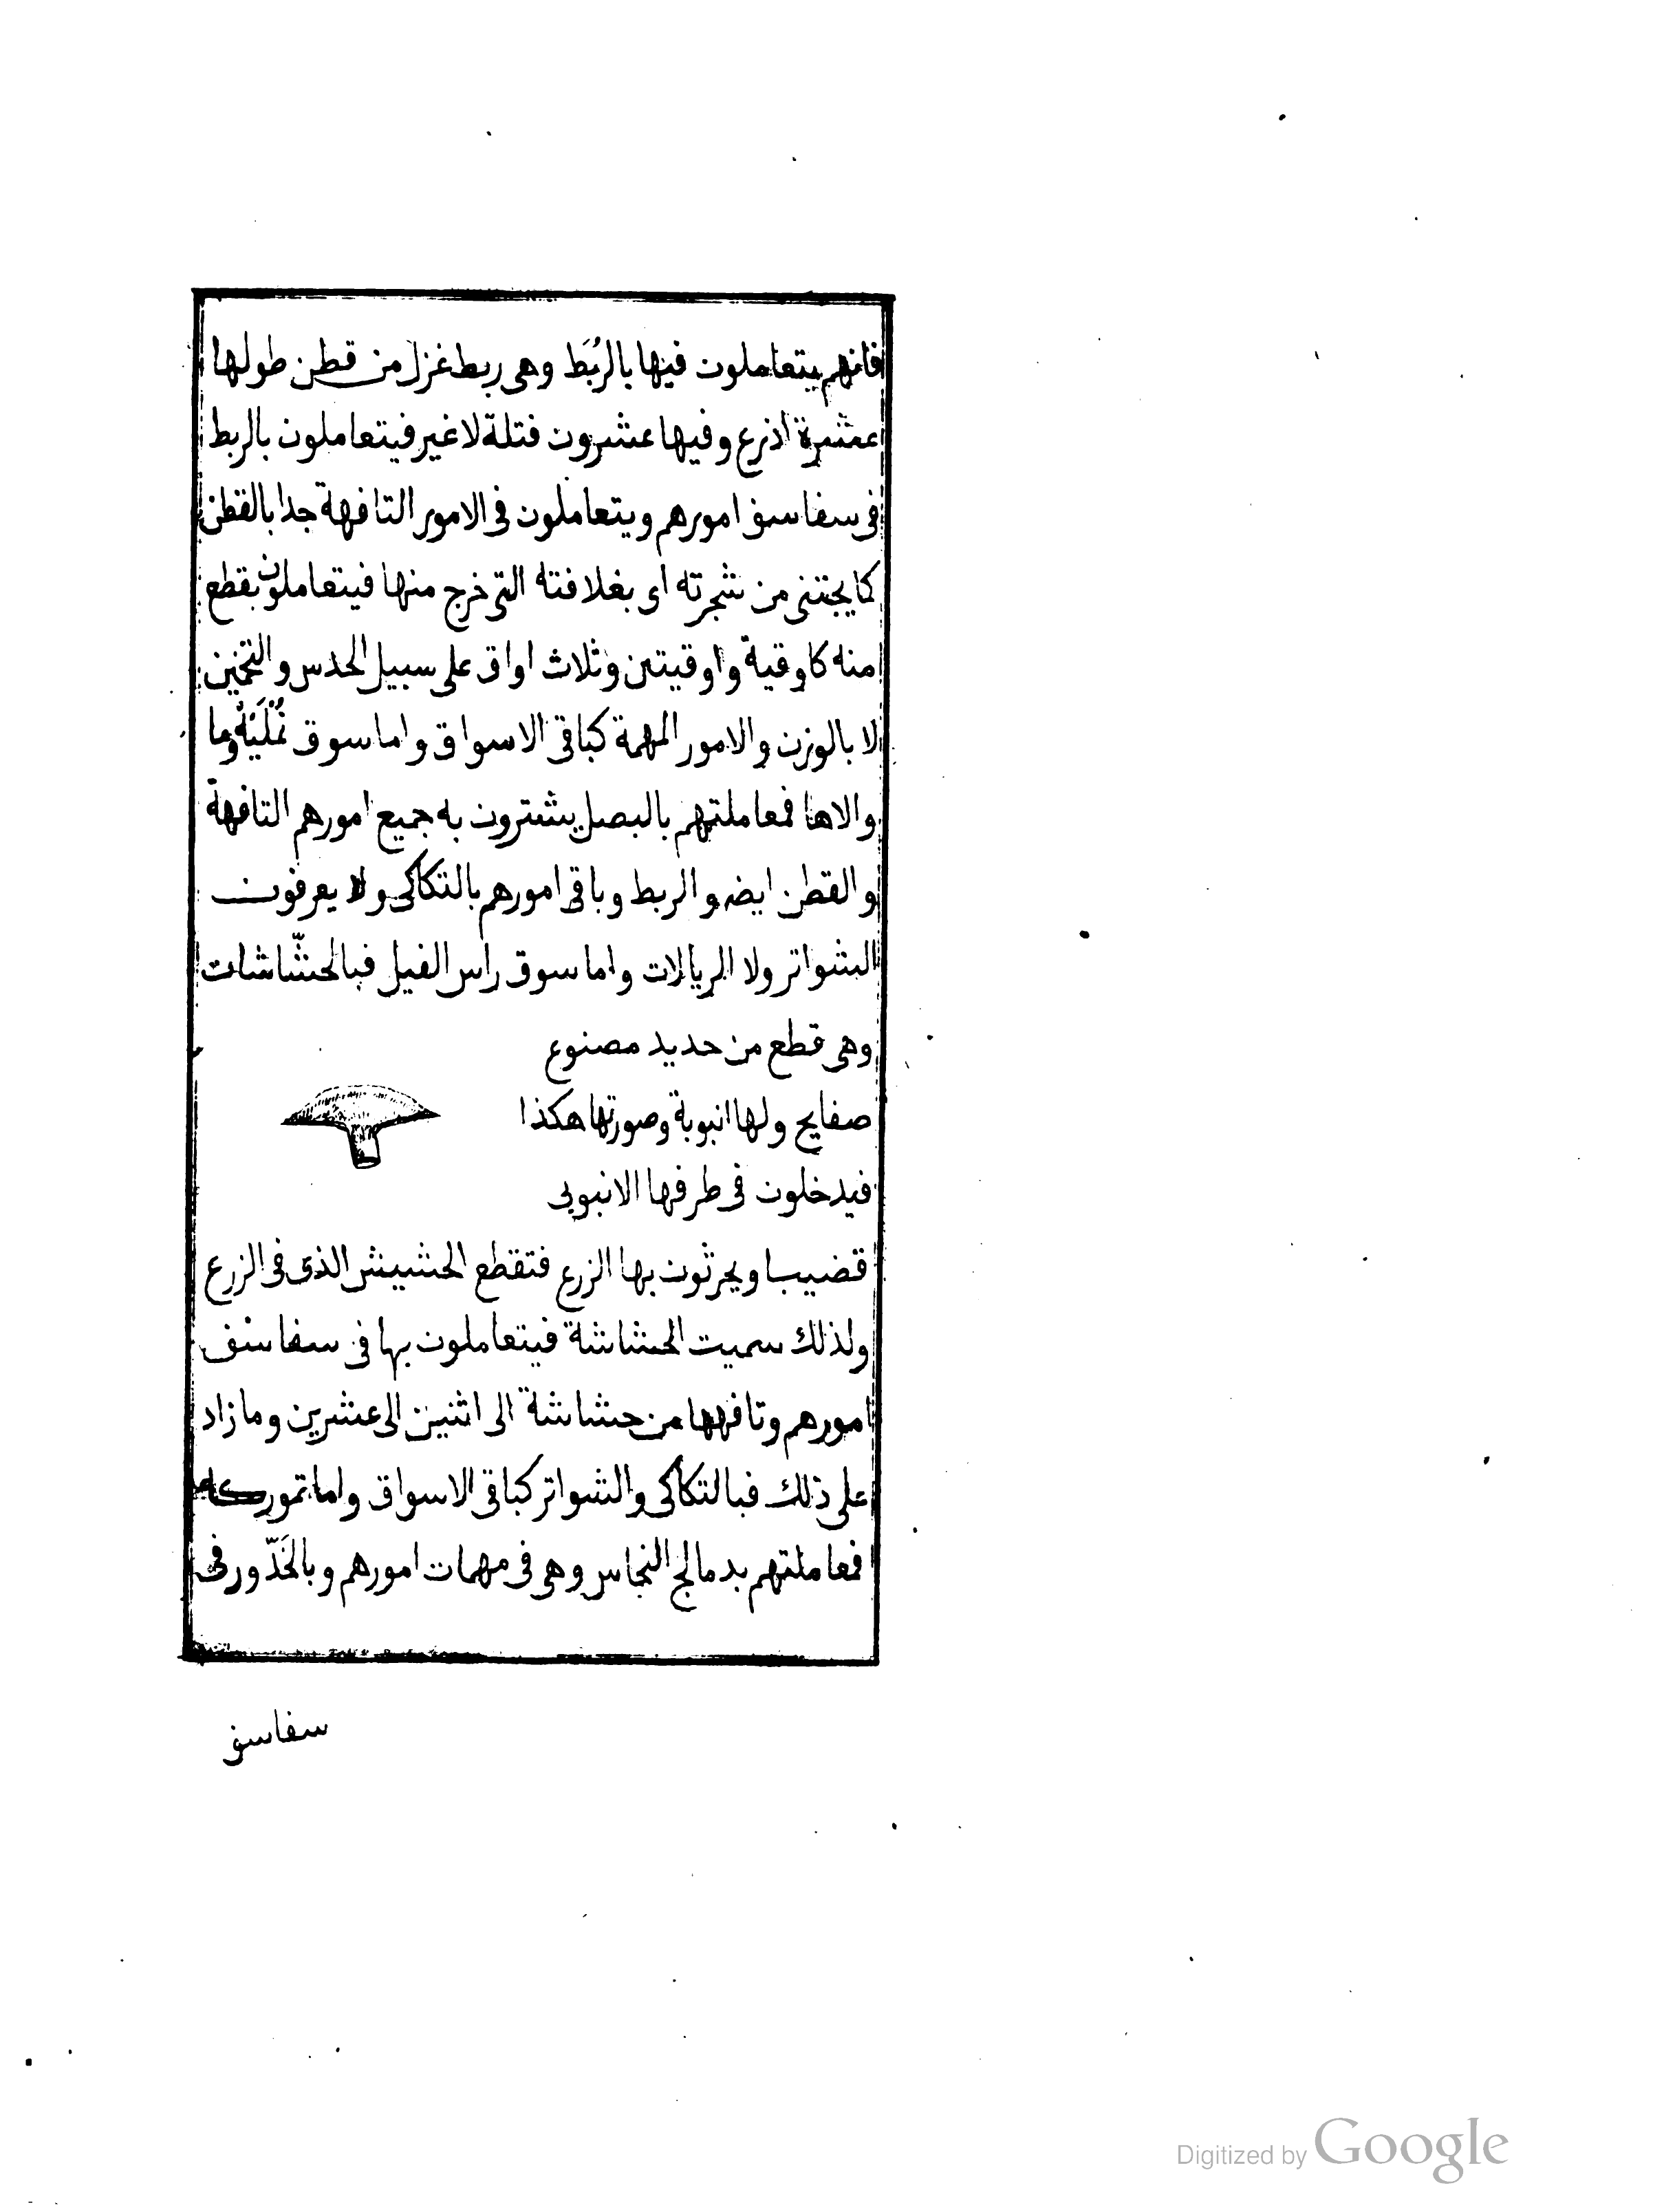 فانهم يتعاملون فيها بالرُبَط وهى ربط غزل من قطن طولها
عشرة اذرع وفيها عشرون فتلة لا غير فيتعاملون بالربط
فى سفاسف امورهم ويتعاملون فى الامور التافهة جدا بالقطن
كما يجتنى من شجرته اى بغلافته التى خرج منها فيتعاملون بقطع
منه كاوقية واوقيتين وثلاث اواق على سبيل الحدس والتخمين
لا بالوزن والامور المهمة كباقى الاسواق واما سوق نُمْلَيْهْ وما
والاها فمعاملتهم بالبصل يشترون به جميع امورهم التافهة
والقطن ايضه والربط وباقى امورهم بالتكاكى ولا يعرفون
الشواتر ولا الريالات واما سوق راس الفيل فبالحشّاشات
وهى قطع من حديد مصنوع
صفايح ولها انبوبة وصورتها هكذا
فيدخلون فى طرفها الانبوبى
قضيبا ويحرثون بها الزرع فتقطع الحشيش الذى فى الزرع
ولذلك سميت الحشاشة فيتعاملون بها فى سفاسف
امورهم وتافهها من حشاشة الى اثنين الى عشرين وما زاد
على ذلك فبالتكاكى والشواتر كباقى الاسواق واما تموركه
فمعاملتهم بدمالج النحاس وهى فى مهمات امورهم وبالخَدّور فى
سفاسف
Digitized by Google